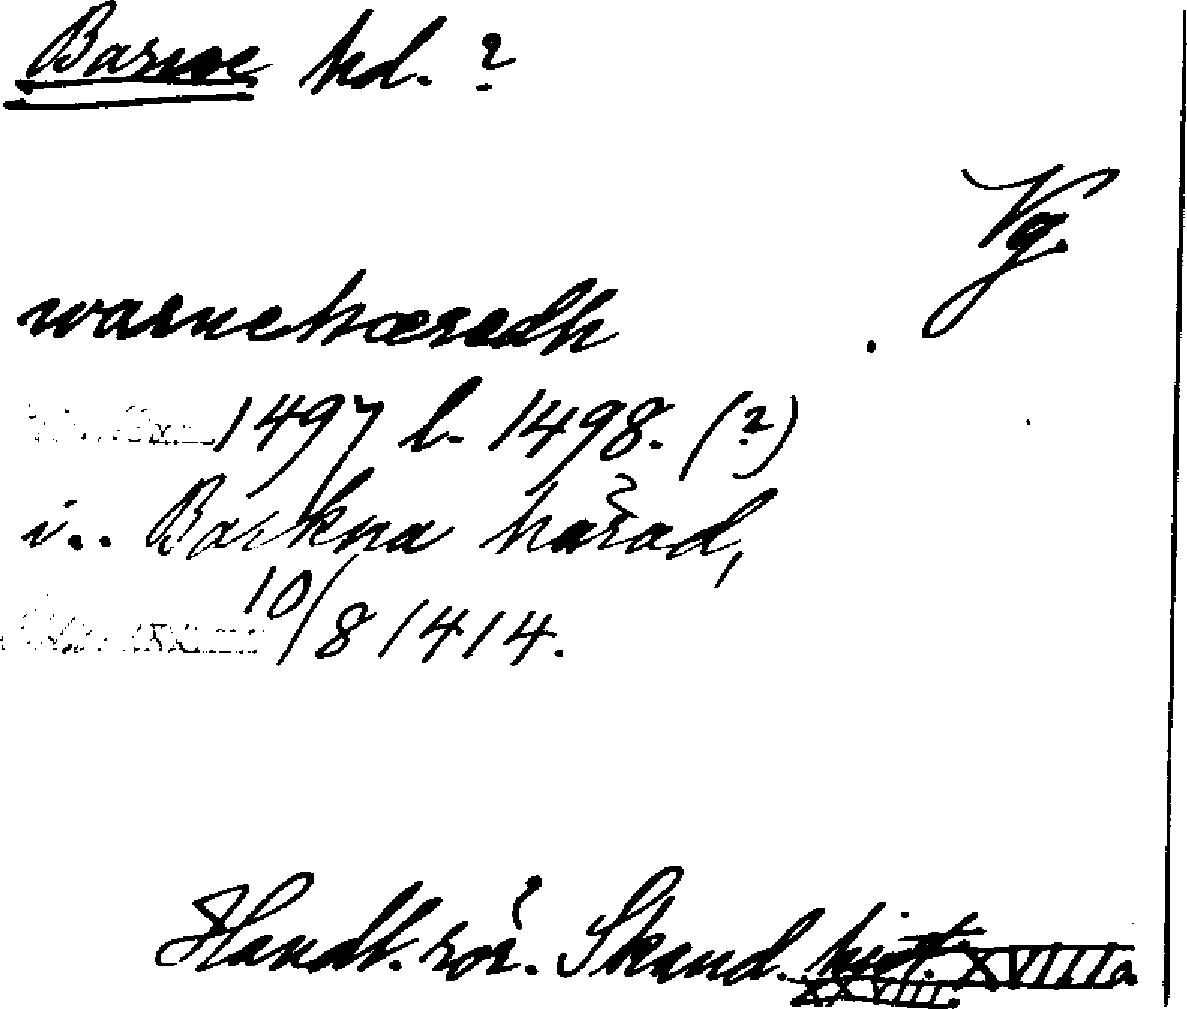 Barne hd. ?
Vg.
warnehæredh
1497 l. 1498. (?)
i.. Barkna härad,
10/8 1414.
Handl. rör. Skand. hist. XVIIIa
XXVIII.